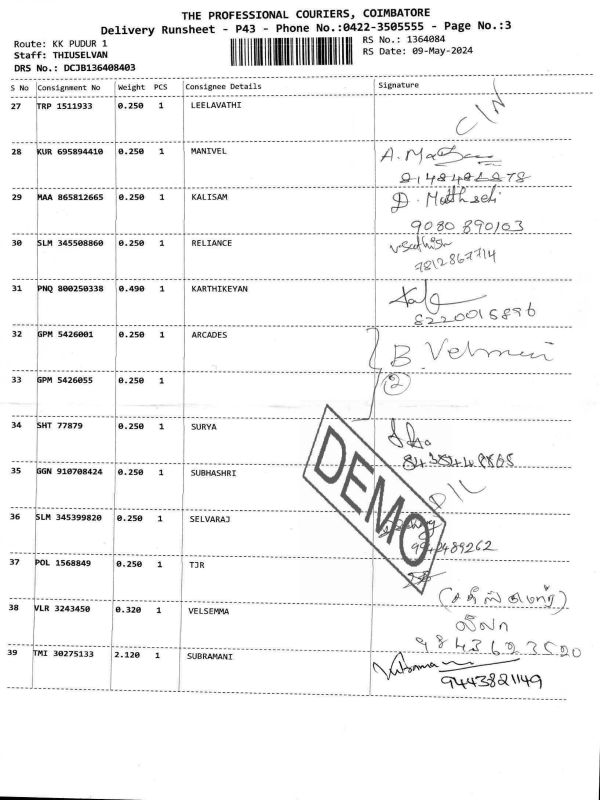 THE PROFESSIONAL COURIERS, COIMBATORE
Delivery Runsheet - P43 - Phone No.:0422-3505555 - Page No.:3
Route: KK PUDUR 1
RS No.: 1364084
Staff: THIUSELVAN
RS Date: 09-May-2024
DRS No.: DCJB136408403
S No Consignment No Weight PCS Consignee Details Signature
27 TRP 1511933 0.250 1 LEELAVATHI
28 KUR 695894410 0.250 1 MANIVEL
29 MAA 865812665 0.250 1 KALISAM
9080 890103
30 SLM 345508860 0.250 1 RELIANCE
7812867714
31 PNQ 800250338 0.490 1 KARTHIKEYAN
8220015896
32 GPM 5426001 0.250 1 ARCADES
33 GPM 5426055 0.250 1
2
34 SHT 77879 0.250 1 SURYA
35 GGN 910708424 0.250 1 SUBHASHRI
DEMO
36 SLM 345399820 0.250 1 SELVARAJ
9942489262
37 POL 1568849 0.250 1 TJR
38 VLR 3243450 0.320 1 VELSEMMA
9843623520
39 TMI 30275133 2.120 1 SUBRAMANI
9443821149